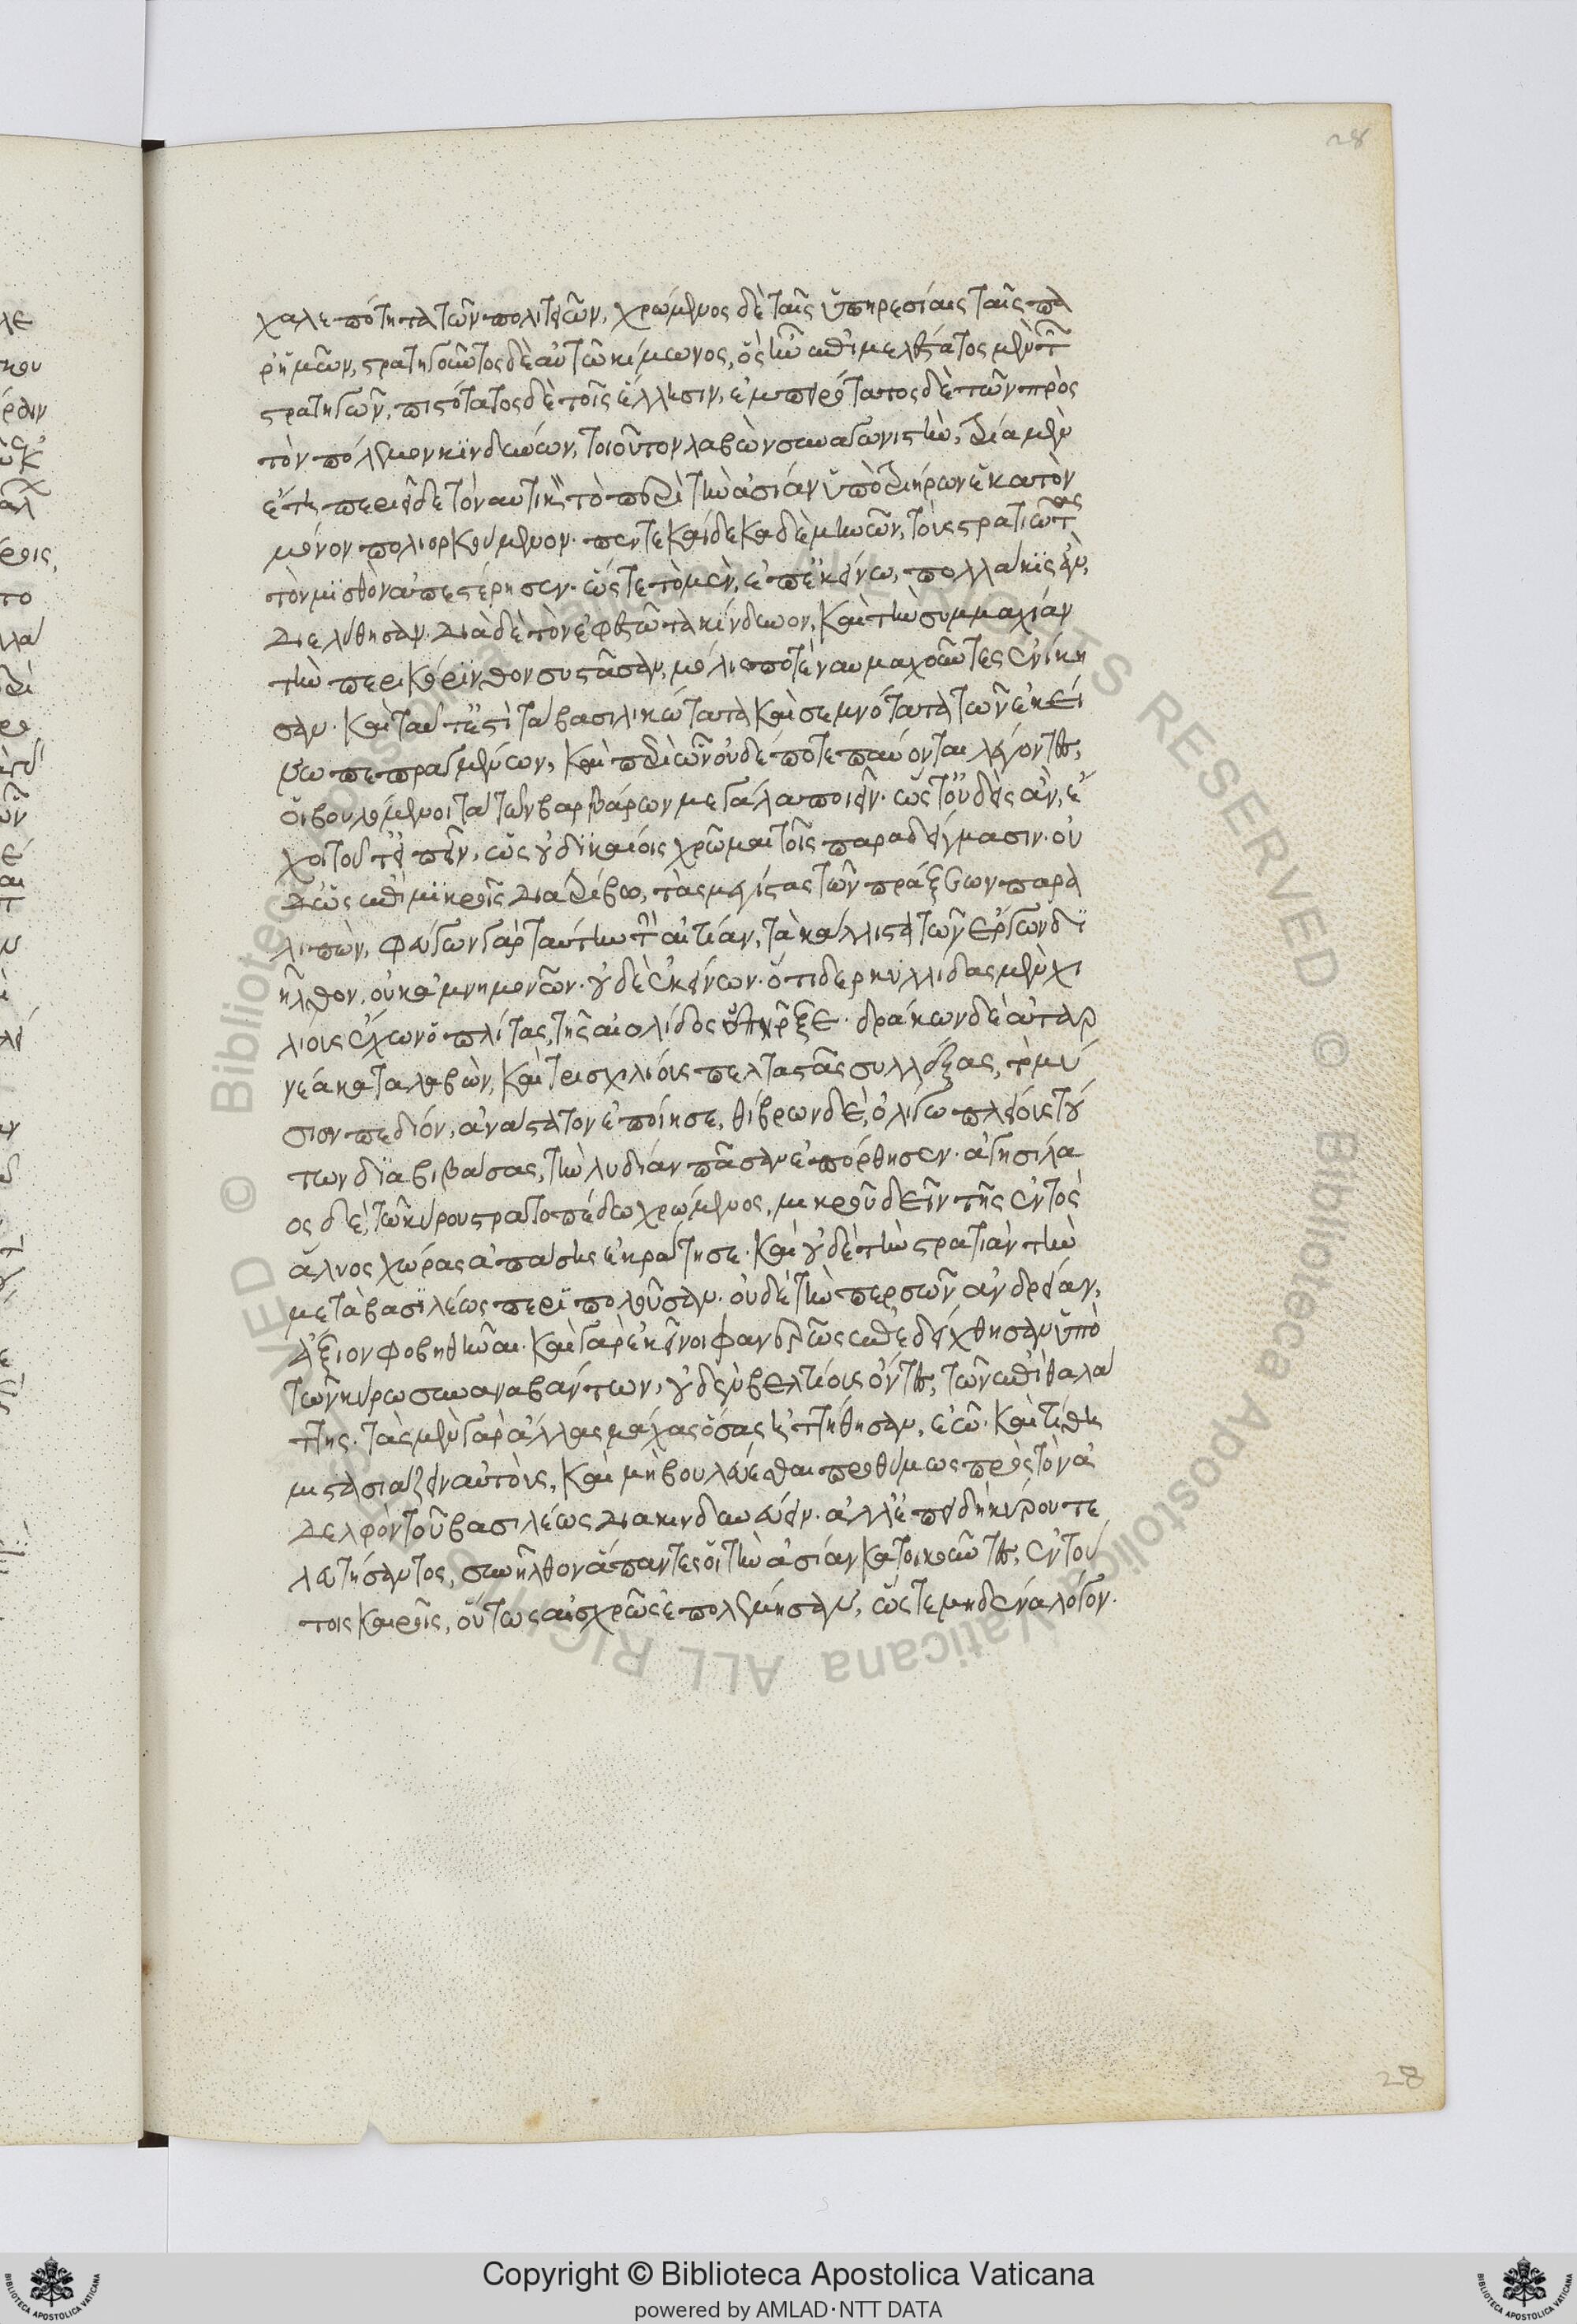 χαλεπότητα τῶν πολιτειῶν, χρώμενος δὲ ταῖς ὑπηρεσίαις ταῖς πα
ρ' ἡμῶν, στρατηγοῦντος δὲ αὐτῶ κίμωνος, ὃς ἦν ἐπιμελέστατος μὲν τῶν
στρατηγῶν, πιστότατος δὲ τοῖς ἕλλησιν, ἐμπειρότατος δὲ τῶν πρὸς
τὸν πόλεμον κινδύνων, τοιοῦτον λαβὼν συναγωνιστὴν, τρία μὲν
ἔτη περιεῖδε τὸ ναυτικὸν τὸ περὶ τὴν ἀσίαν ὑπὸ τριήρων ἑκατὸν
μόνον πολιορκούμενον. πεντεκαίδεκα δὲ μηνῶν, τοὺς στρατιώτας
τὸν μισθὸν ἀπεστέρησεν. ὥστε τὸ μὲν, ἐπ' ἐκείνω, πολλάκις ἂν,
διελύθησαν. διὰ δὲ τὸν ἐφεστῶτα κίνδυνον, καὶ τὴν συμμαχίαν
τὴν περὶ κόρινθον συστᾶσαν, μόλις ποτὲ ναυμαχοῦντες ἐνίκη
σαν. καὶ ταῦτ' ἔστι τὰ βασιλικώτατα καὶ σεμνότατα τῶν ἐκεί
νω πεπραγμένων, καὶ περὶ ὧν οὐδέποτε παύονται λέγοντες,
οἱ βουλόμενοι τὰ τῶν βαρβάρων μεγάλα ποιεῖν. ὥστ' οὐδεὶς ἂν, ἔ
χοι τοῦτ' εἰπεῖν, ὡς οὐ δικαίοις χρῶμαι τοῖς παραδείγμασιν. οὐ
δ' ὡς ἐπὶ μικροῖς διατρίβω, τὰς μεγίστας τῶν πράξεων παρα
λιπών, φεύγων γὰρ ταύτην τὴν αἰτίαν, τὰ κάλλιστα τῶν ἔργων δι
ῆλθον, οὐκ ἀμνημονῶν. οὐδὲ ἐκείνων. ὅτι δερκυλλίδας μὲν χι
λίους ἔχων ὁπλίτας, τῆς αἰολίδος ὑπῆρξε. δράκων δὲ ἀταρ
νέα καταλαβὼν, καὶ τρισχιλίους πελταστὰς συλλέξας, τὸ μύ
σιον πεδίον, ἀνάστατον ἐποίησε, θίβρων δὲ, ὀλίγω πλείους τού
των διαβιβάσας, τὴν λυδίαν πᾶσαν ἐπόρθησεν. ἀγησίλα
ος δὲ, τῶ κύρου στρατοπέδω χρώμενος, μικροῦ δεῖν τῆς ἐντὸς
ἅλυος χώρας ἁπάσης ἐκράτησε. καὶ οὐδὲ τὴν στρατιὰν τὴν
μετὰ βασιλέως περιπολοῦσαν. οὐδὲ τὴν περσῶν ἀνδρείαν,
ἄξιον φοβηθῆναι. καὶ γὰρ ἐκεῖνοι φανερῶς ἐπεδείχθησαν ὑπὸ
τῶν κύρω συναναβάντων, οὐδὲν βελτίους ὄντες, τῶν ἐπὶ θαλά
ττης. τὰς μὲν γὰρ ἄλλας μάχας ὅσας ἡττήθησαν, ἐῶ. καὶ τίθη
μι στασιάζειν αὐτοὺς, καὶ μὴ βούλεσθαι προθύμως πρὸς τὸν ἀ
δελφὸν τοῦ βασιλέως διακινδυνεύειν. ἀλλ' ἐπειδὴ κύρου τε
λευτήσαντος, συνῆλθον ἅπαντες οἱ τὴν ἀσίαν κατοικοῦντες, ἐν τού
τοις καιροῖς, οὕτως αἰσχρῶς ἐπολέμησαν, ὥστε μηδένα λόγον.
28
28
Copyright © Biblioteca Apostolica Vaticana
powered by AMLAD·NTT DATA